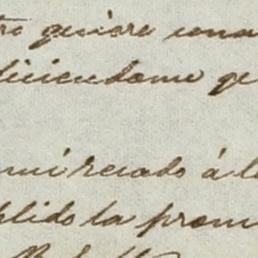 quiere una
diciendome qe
mi reciado á l
plido la prom